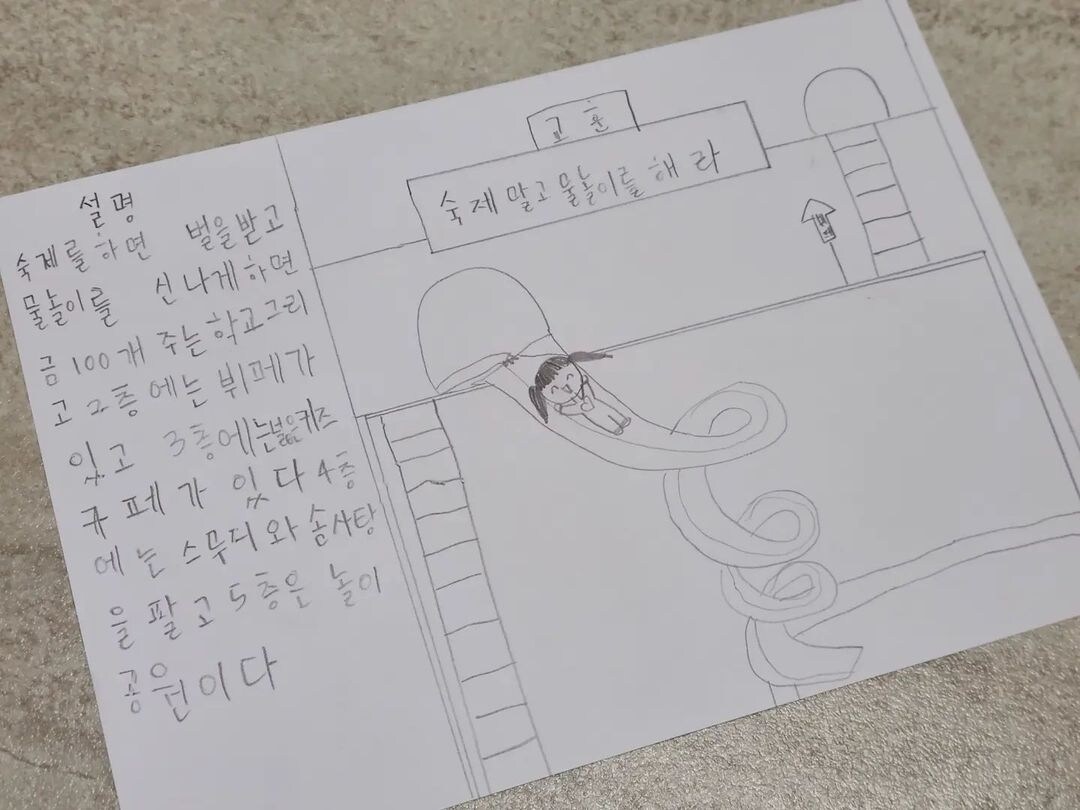 설명
숙제를하면 벌을받고
물놀이를 신나게하면
금100개 주는학교그리
고 2층에는 뷔페가
있고 3층에는넓은키즈
카페가 있다 4층
에는 스무디와 솜사탕
을 팔고 5층은 놀이
공원이다
교훈
숙제말고물놀이를해라